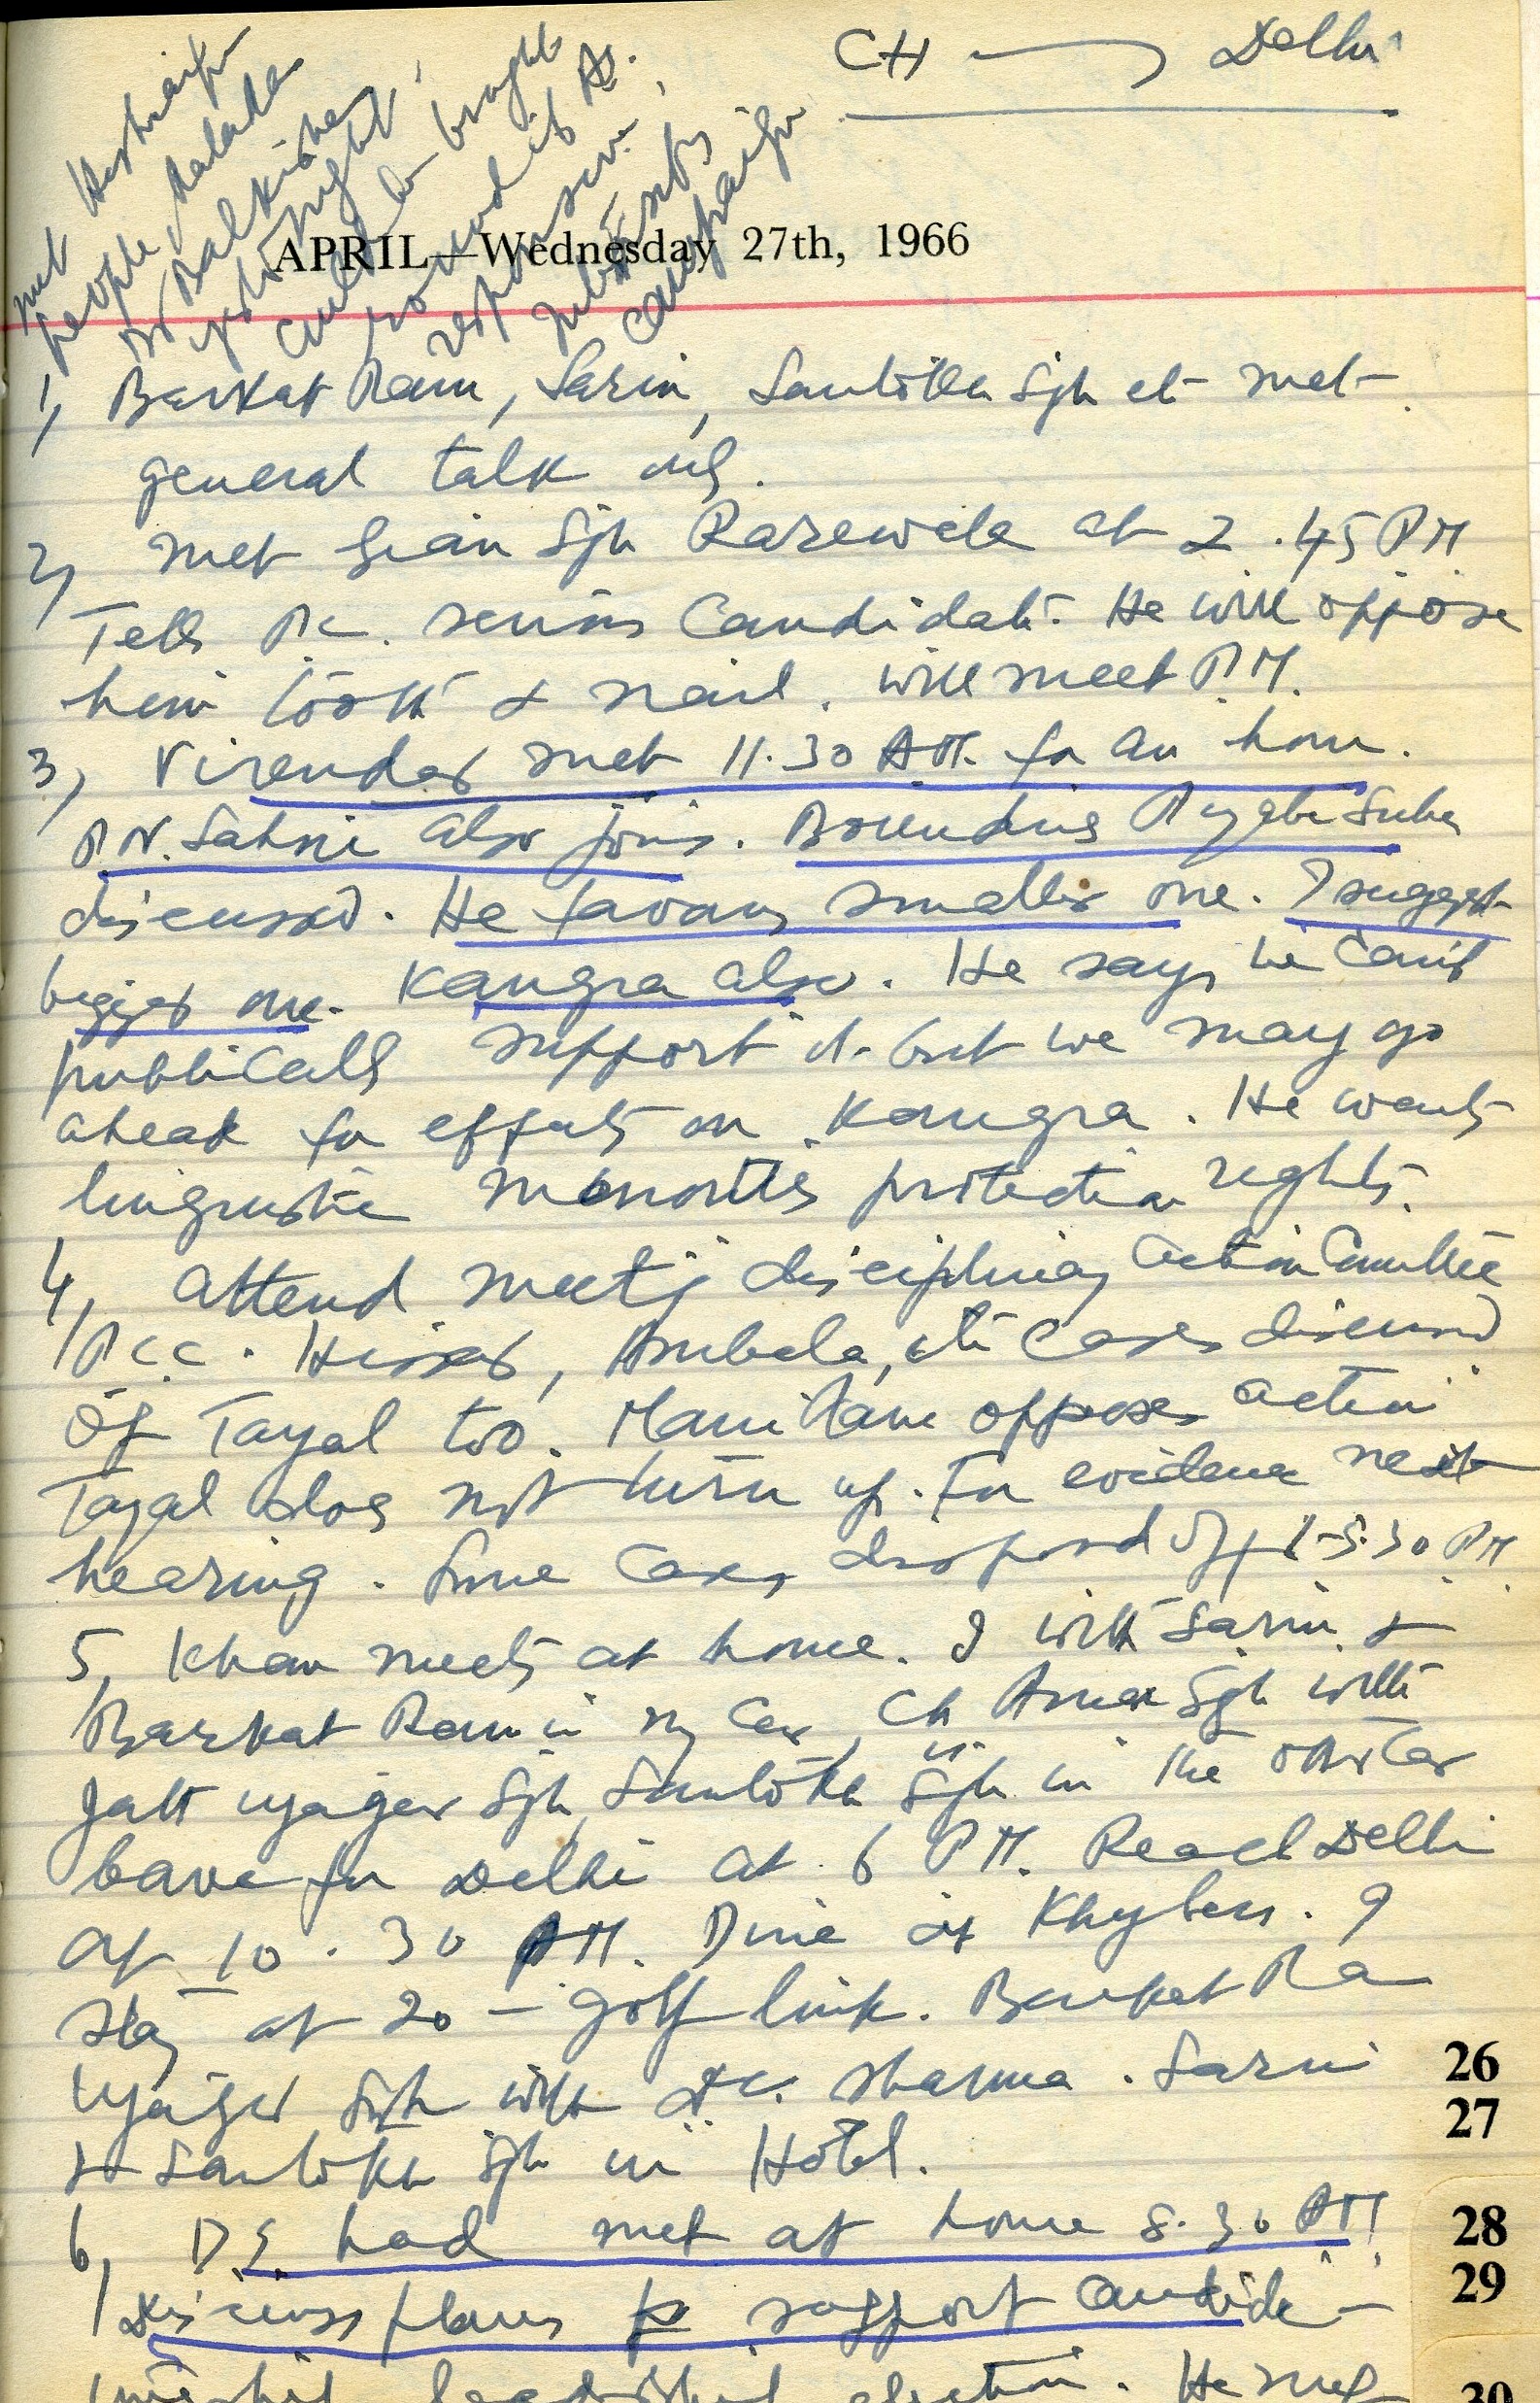 CH → Delhi
met Hoshiarpur
people, 
Dr Balkishan
yest. night.
could be brought
round if A.
response.
Intensify
campaign
APRIL—Wednesday 27th, 1966
1, Barkat Ram, Sarin, Santokh Sgh et met.
general talk only.
2, met Gian Sgh Rarewala at 2.45 PM
Tells P.C. serious Candidate. He will oppose
him tooth & nail. will meet P.M.
3, Virender met 11.30 AM. for an hour.
P N. Sahni also joins. Boundries Pujabi Suba
discussed. He favours smaller one. I suggest
bigger one. Kangra also. He says he can't
publically support it but we may go
ahead for efforts on Kangra. He wants
linguistic minorities protection rights.
4, Attend meetg disciplinary action Committee
PCC. Hissar, Ambala, etc Cases discussed
of Tayal too. Mani Ram opposes action
Tayal does not turn up. For evidence next
hearing. Some Cases disposed off -5.30 PM
5, Khan meets at home. I with Sarin &
Barkat Ram in my Car, Ch Amar Sgh with
Jatt Ujagar Sgh, Santokh Sgh in the other Car
leave for Delhi at 6 PM. Reach Delhi
at 10.30 PM. Dine at Khybers. I
stay at 20 - golf link. Barkat Ra
Ujagar Sgh with D.C. Sharma. Sarin
& Santokh Sgh in Hotel.
6, D.S. had met at home 8.30 AM
Discuss plans to support candida-
leadership election. He met
26
27
28
29
30